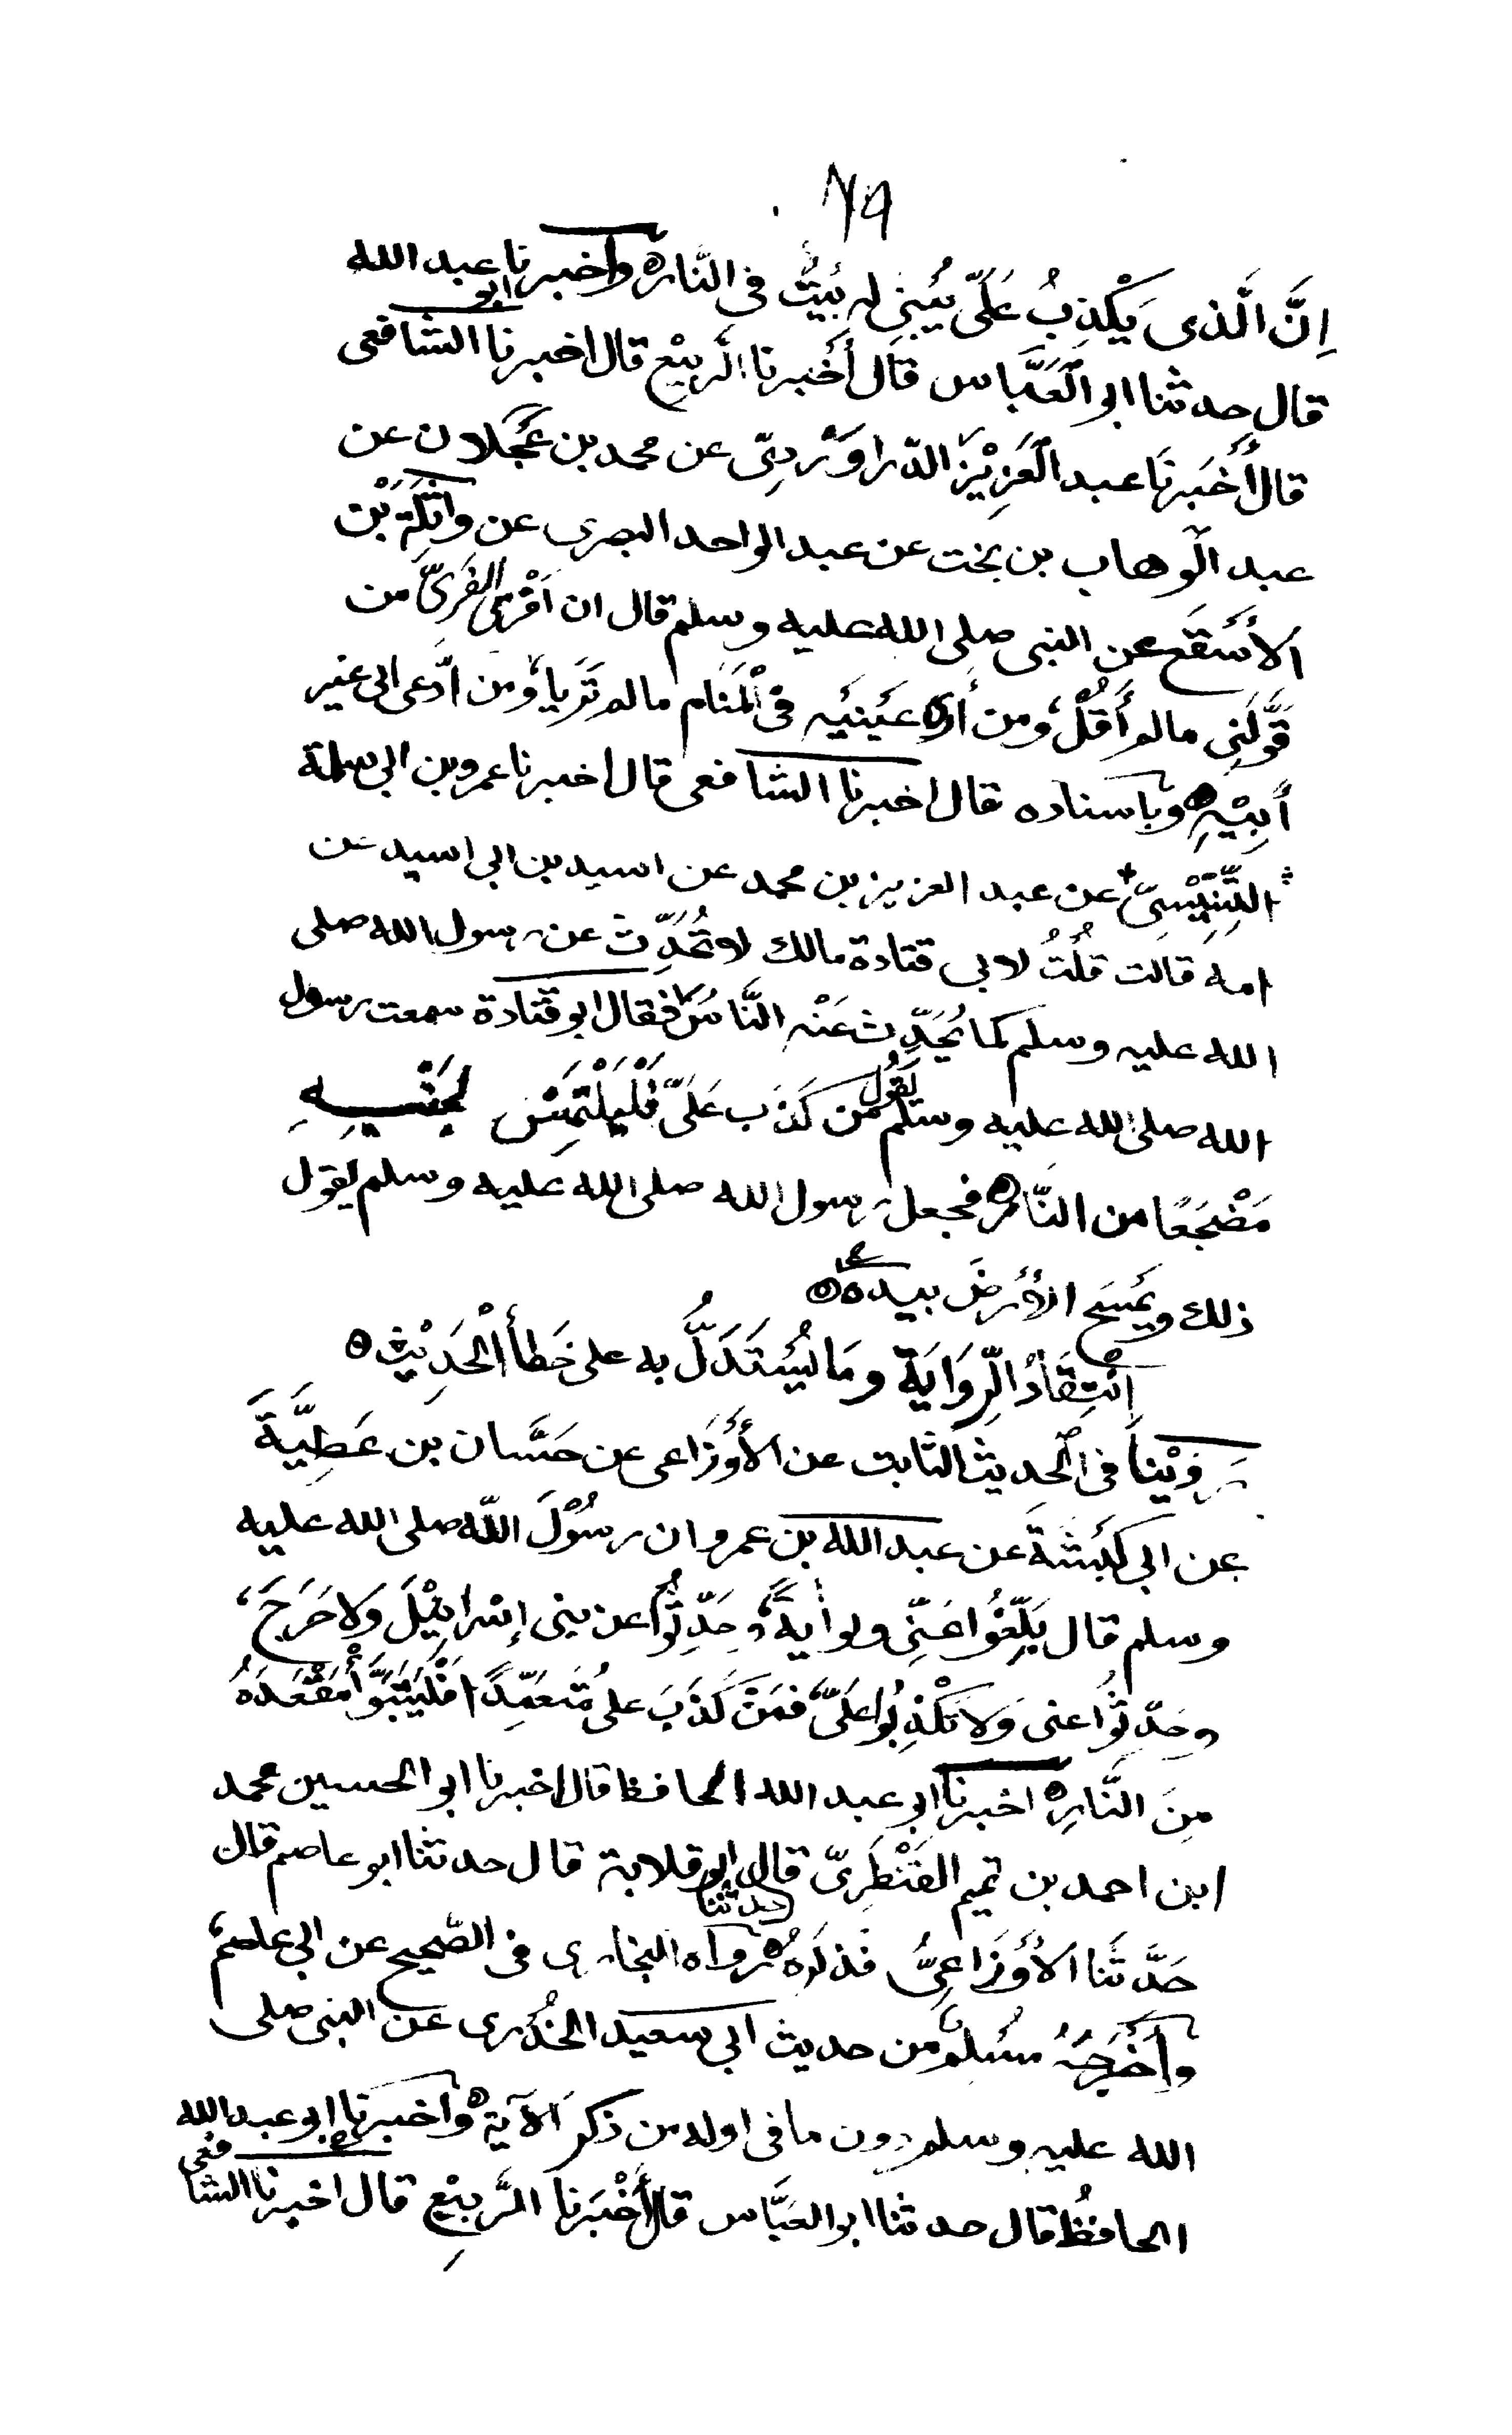 ٦٩
اِنَّ الَّذى يَكْذِبُ عَلَىَّ يُبْنٰى له بَيْتٌ فى النَّار ه واخبرنا ابو عبد الله
قال حدثنا ابو العَبَّاس قال أَخْبرنا الربيع قال اخبرنا الشافعى
قال أَخْبَرنَا عبد الْعَزِيْز الدّراوَرْدِىّ عن محمد بن عَجْلان عن
عبد الْوهاب بن بخت عن عبد الواحد البصرى عن واثِلَة بْن
الأَسْقَع عن النبى صلى الله عليه وسلم قال ان اَفْرَى الفَرىّ من
قَوَّلَنِى مالم أَقُلْ، ومن أرى عَيْنَيْه فى الْمَنَام مالم تَرَيا، ومن ادَّعى الى غير
أَبِيْهِ ه وباسناده قال اخبرنا الشافعى قال اخبرنا عمرو بن ابى سلمة
التِّنِّيْسِىّ عن عبد العزيز بن محمد عن اسيد بن ابى اسيد عن
امه قالت قُلْتُ لابى قتادة مالك لا تُحَدِّث عن رسول الله صلى
الله عليه وسلم كما يُحَدِّث عَنْه النَّاسُ فقال ابو قتادة سمعت رسول
الله صلى الله عليه وسلم يَقُول من كَذَب عَلَىَّ فَلْيَلْتَمِسْ لِجَنْبِهِ
مَضْجَعًا من النَّار ه فجعل رسول الله صلى الله عليه وسلم يقول
ذلك ويَمْسَح الأَرضَ بيده ه
اِنْتِقَادُ الرِّوَايَة وَمَا يُسْتَدَلُّ به على خَطأ الْحَدِيْث ه
رَوَيْنا فى الْحديث الثابت عن الأَوْزَاعى عن حَسَّان بن عَطِيَّةَ
عن ابى كَبْشَةَ عن عبد الله بن عمرو ان رسُوْلَ اللّه صلى الله عليه
وسلم قال بَلِّغُوا عَنِّى ولو أيةً، وحَدِّثُوا عن بنى إسْرايْلَ وَلاحَرَجَ،
وحَدّثُوا عنى وَلا تَكْذِبُوا عَلَىَّ، فمَنْ كَذَبَ على مُتَعَمِّدًا فَلْيَتَبَوَّأْ مَقْعَدَهُ
مِنَ النَّارِ ه اخبرنا ابو عبد الله الحافظ قال اخبرنا ابو الحسين محمد
ابن احمد بن تميم القَنْطَرِىّ قال حدثنا ابو قلابة قال حدثنا ابو عاصم قال
حَدَّثَنا الأَوْزَاعِىُّ فذكرهُ ه رواه البخارى فى الصّحيح عن ابى عاصم،
وأَخْرَجَهُ مسْلم من حديث ابى سعيد الخُدْرى عن النبى صلى
الله عليه وسلم دون ما فى اوله من ذكر الآيَة ه واخبرنا ابو عبد الله
الحافظُ قال حدثنا ابو العَبَّاس قال أَخْبَرنا الرَّبِيْع قال اخبرنا الشافعى